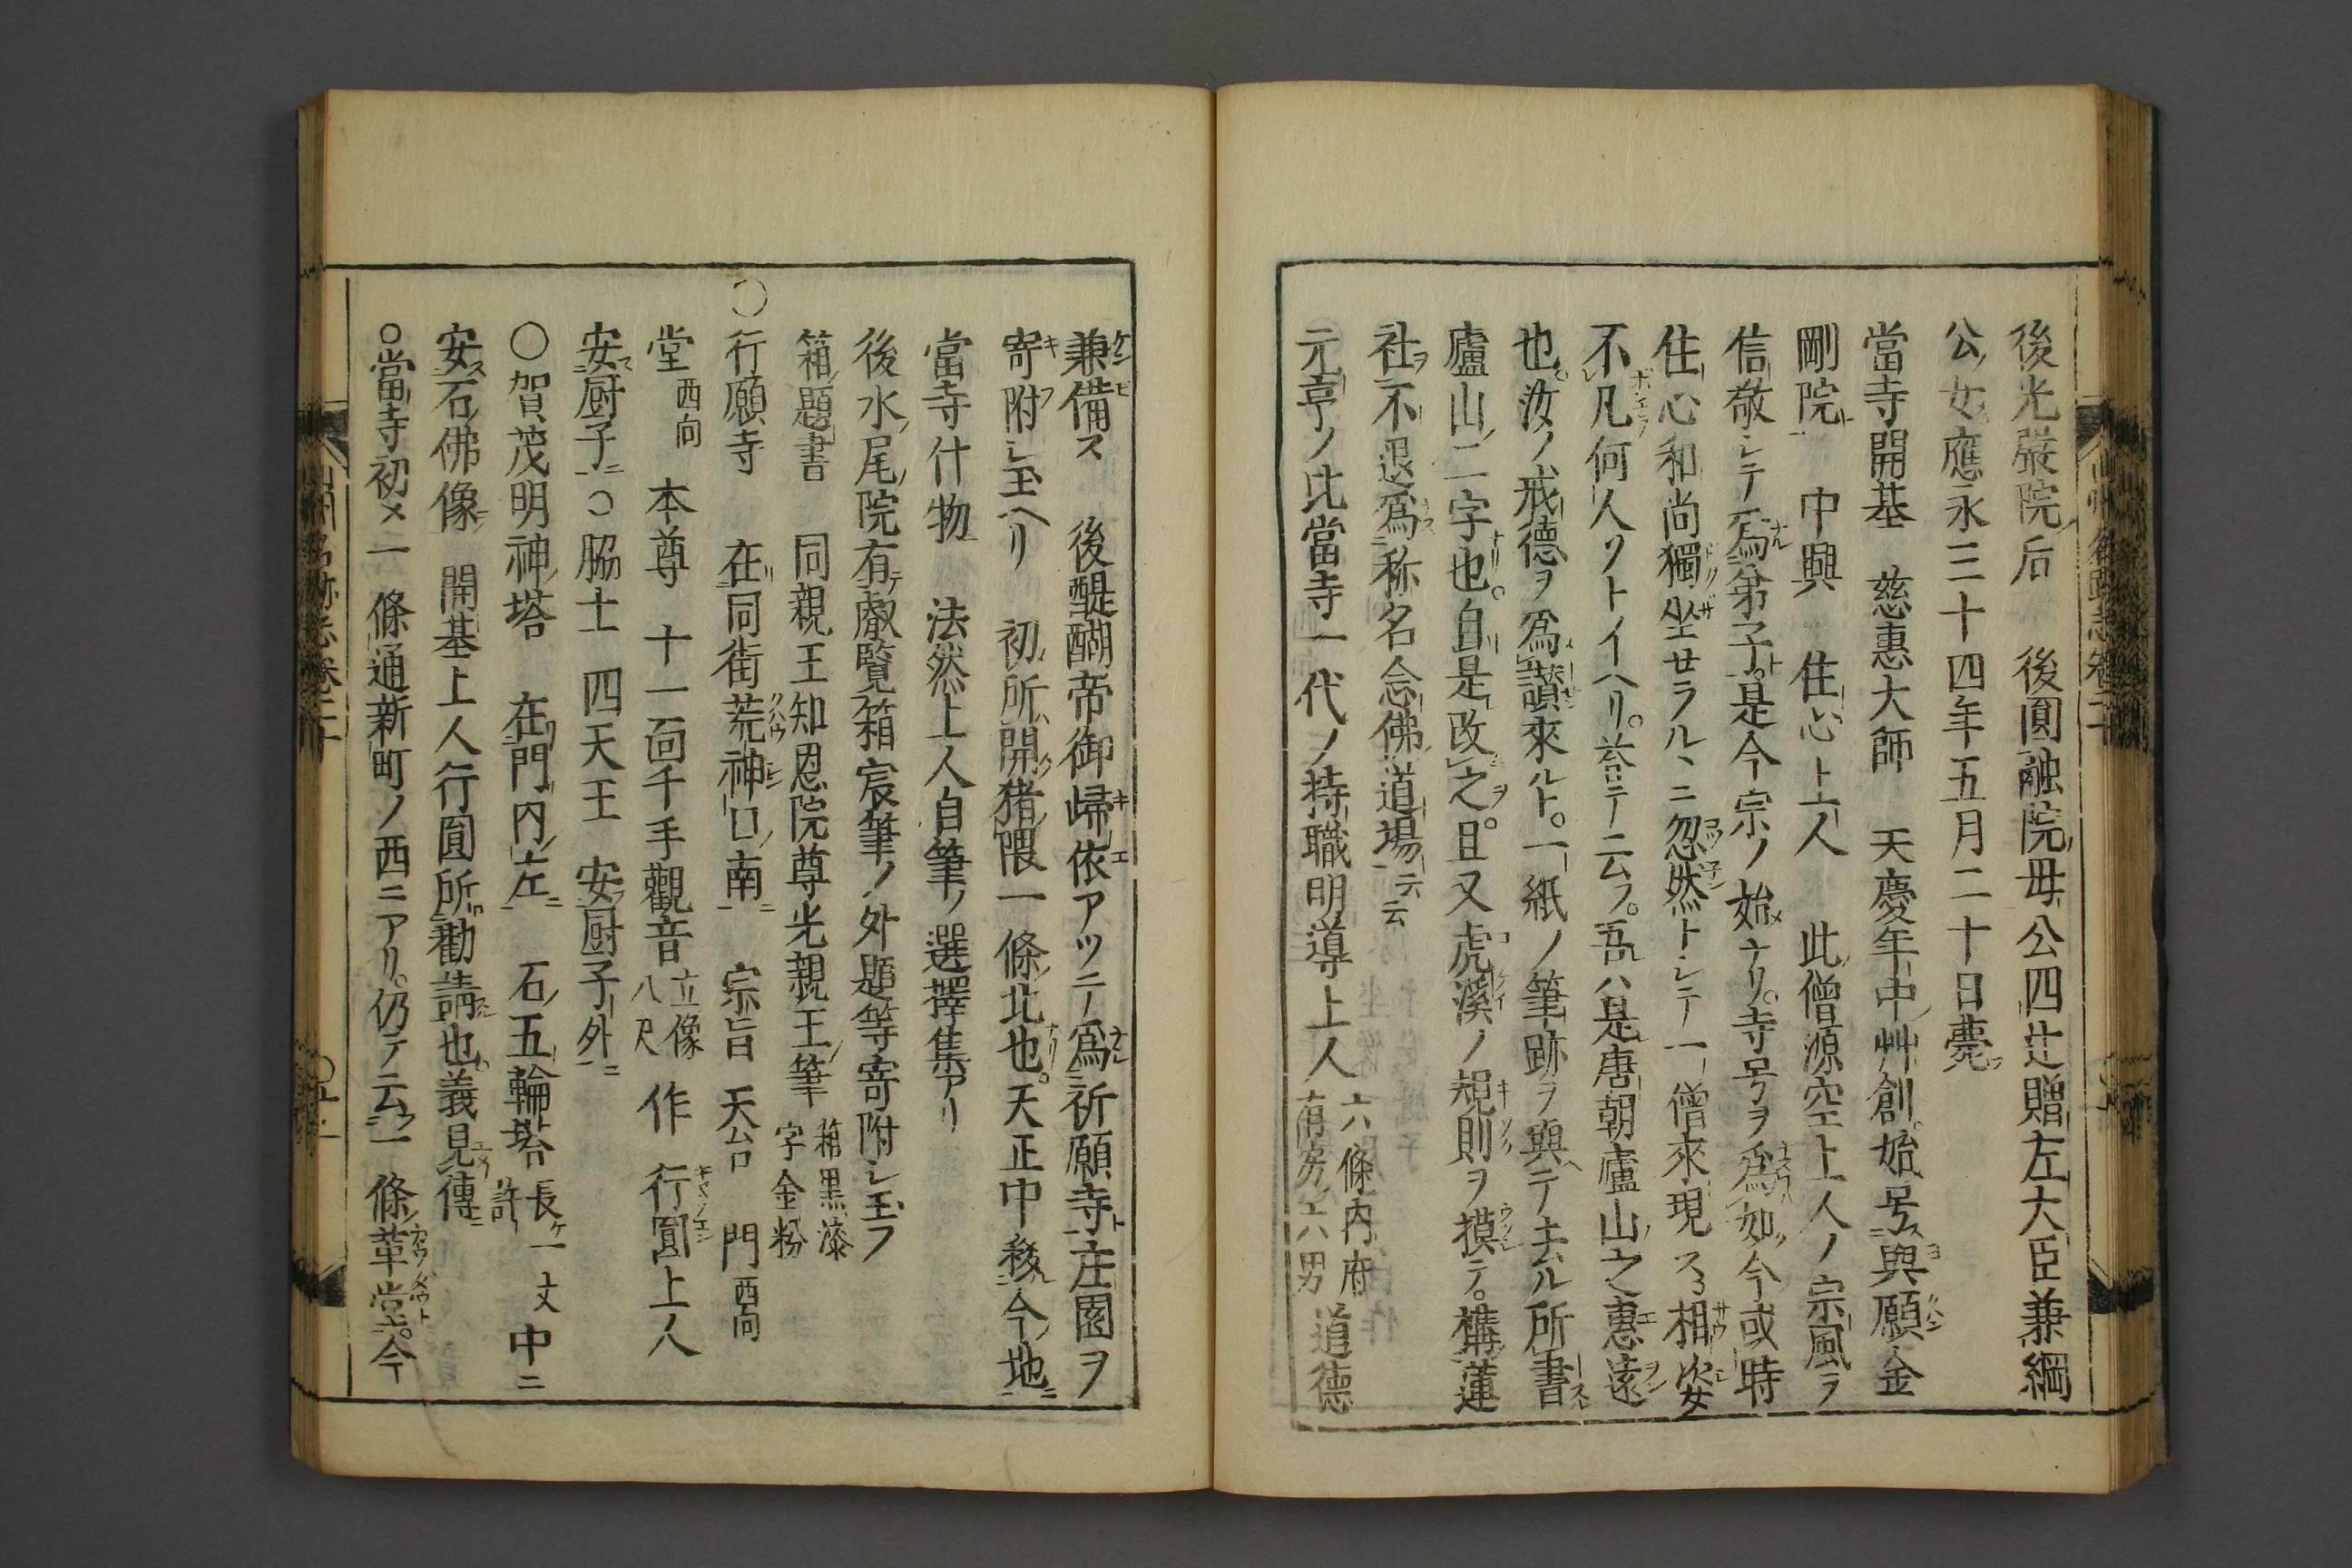 後光嚴院ノ后　後圓融院ノ母公四辻贈左大臣兼綱
公ノ女應永三十四年五月二十日薨ス
當寺開基　慈惠大師　天慶年中ノ艸創始号ス與願金
剛院ト　中興　住心上人　此ノ僧源空上人ノ宗風ヲ
信敬シテ爲ル弟子ト。是今宗ノ始メナリ。寺号ヲ爲如ノ今或時
住心和尚獨坐セラルヽニ忽然トシテ一僧來現ス相姿
不凡何人ソトイヘリ。荅テ云フ。吾ハ是唐朝廬山ノ之惠遠
也。汝ノ戒德ヲ爲讃來ルト。一紙ノ筆跡ヲ與ヘテ去ル所書スル
廬山ノ二字也。自是改之ヲ。且又虎溪ノ規則ヲ摸テ。構蓮
社ヲ不退爲称名念佛ノ道場ト云云
元亨ノ比當寺一代ノ持職明導上人六條内府有房ノ六男道德
兼備ス　後醍醐帝御歸依アツテ爲祈願寺ト庄園ヲ
寄附シ玉ヘリ　初メ所ハ開ク猪隈一條ノ北也。天正中移ル今ノ地ニ
當寺什物　法然上人自筆ノ選擇集アリ
後水ノ尾ノ院有テ叡覧箱宸筆ノ外題等寄附シ玉フ
箱ノ題書　同親王知恩院尊光親王ノ筆箱黒漆字金粉
〇行願寺　在リ同街荒神口ノ南ニ　宗旨天台　門西向
堂西向　本尊　十一面千手觀音立像八尺　作　行圓上人
安ス厨子ニ〇脇士　四天王　安ス厨子ノ外ニ
〇賀茂明神ノ塔　在門内ノ左ニ　石ノ五輪塔長ケ一丈許　中ニ
安ス石佛像ヲ　開基上人行圓所勸請也。義見エタリ傳ニ
〇當寺初メ一條通新町ノ西ニアリ。仍テ云フ一條ノ革堂ト。今
山州名跡志卷二十
山州名跡志卷二十